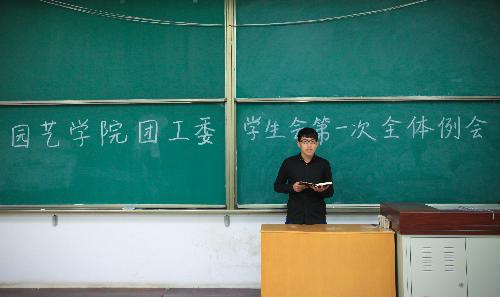 园艺学院团工委 学生会第一次全体例会